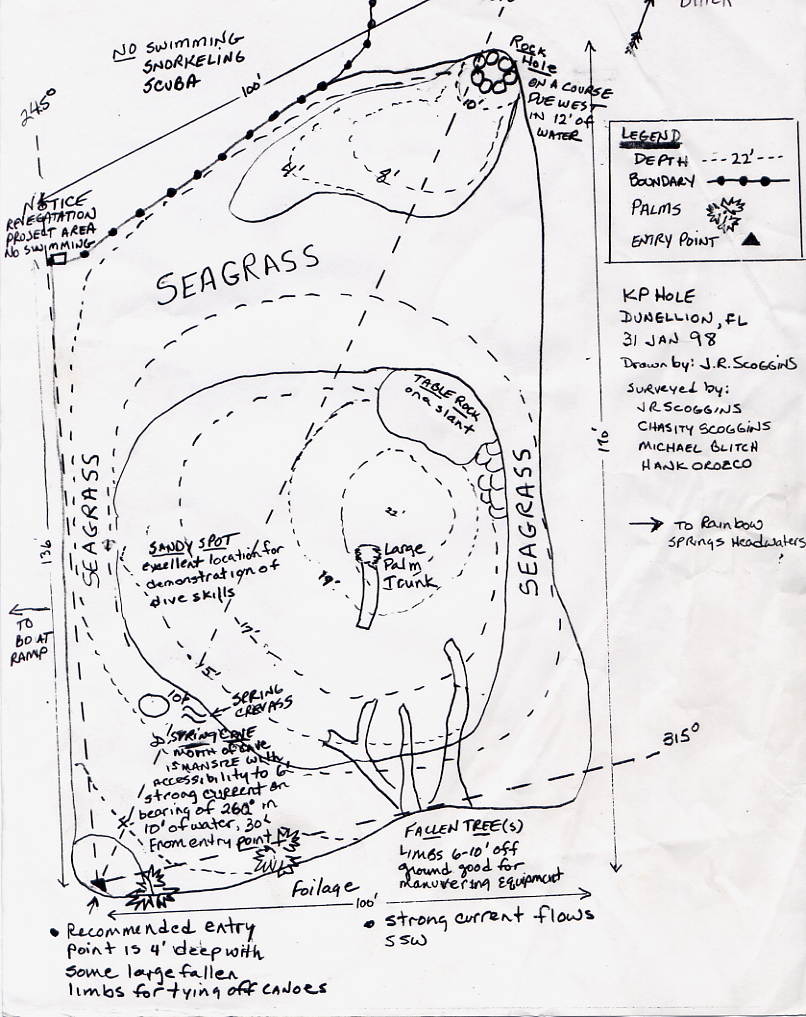 NO SWIMMING
SNORKELING
SCUBA
100'
245°
ROCK
HOLE
ON A COURSE
DUE WEST
IN 12' OF
WATER
10'
8'
4'
NOTICE
REVEGATATION
PROJECT AREA
NO SWIMMING
LEGEND
DEPTH ---22'---
BOUNDARY
PALMS
ENTRY POINT
KP HOLE
DUNELLION, FL
31 JAN 98
Drawn by: J.R. SCOGGINS
Surveyed by:
JR SCOGGINS
CHASITY SCOGGINS
MICHAEL BLITCH
HANK OROZCO
TO Rainbow
SPRINGS Headwaters
SEAGRASS
TABLE ROCK
on a slant
170'
SEAGRASS
SEAGRASS
136'
22'
19'
Large
Palm
Trunk
SANDY SPOT
excellent location for
demonstration of
dive skills
TO
BOAT
RAMP
SPRING
CREVASS
SPRING CAVE
MOUTH OF CAVE
IS MANSIZE WITH
ACCESSIBILITY TO 6'
strong current on
bearing of 260° in
10' of water, 30'
From entry point
315°
FALLEN TREE(S)
LIMBS 6-10' off
ground good for
manuvering Equipment
Foilage
100'
• Recommended entry
point is 4' deep with
some large fallen
limbs for tying off canoes
• strong current flows
SSW